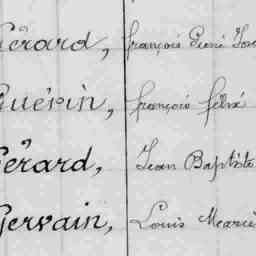 Gérard, françois René Jos
Guérin, françois félix
Gérard, Jean Baptiste
Gervain, Louis Marie